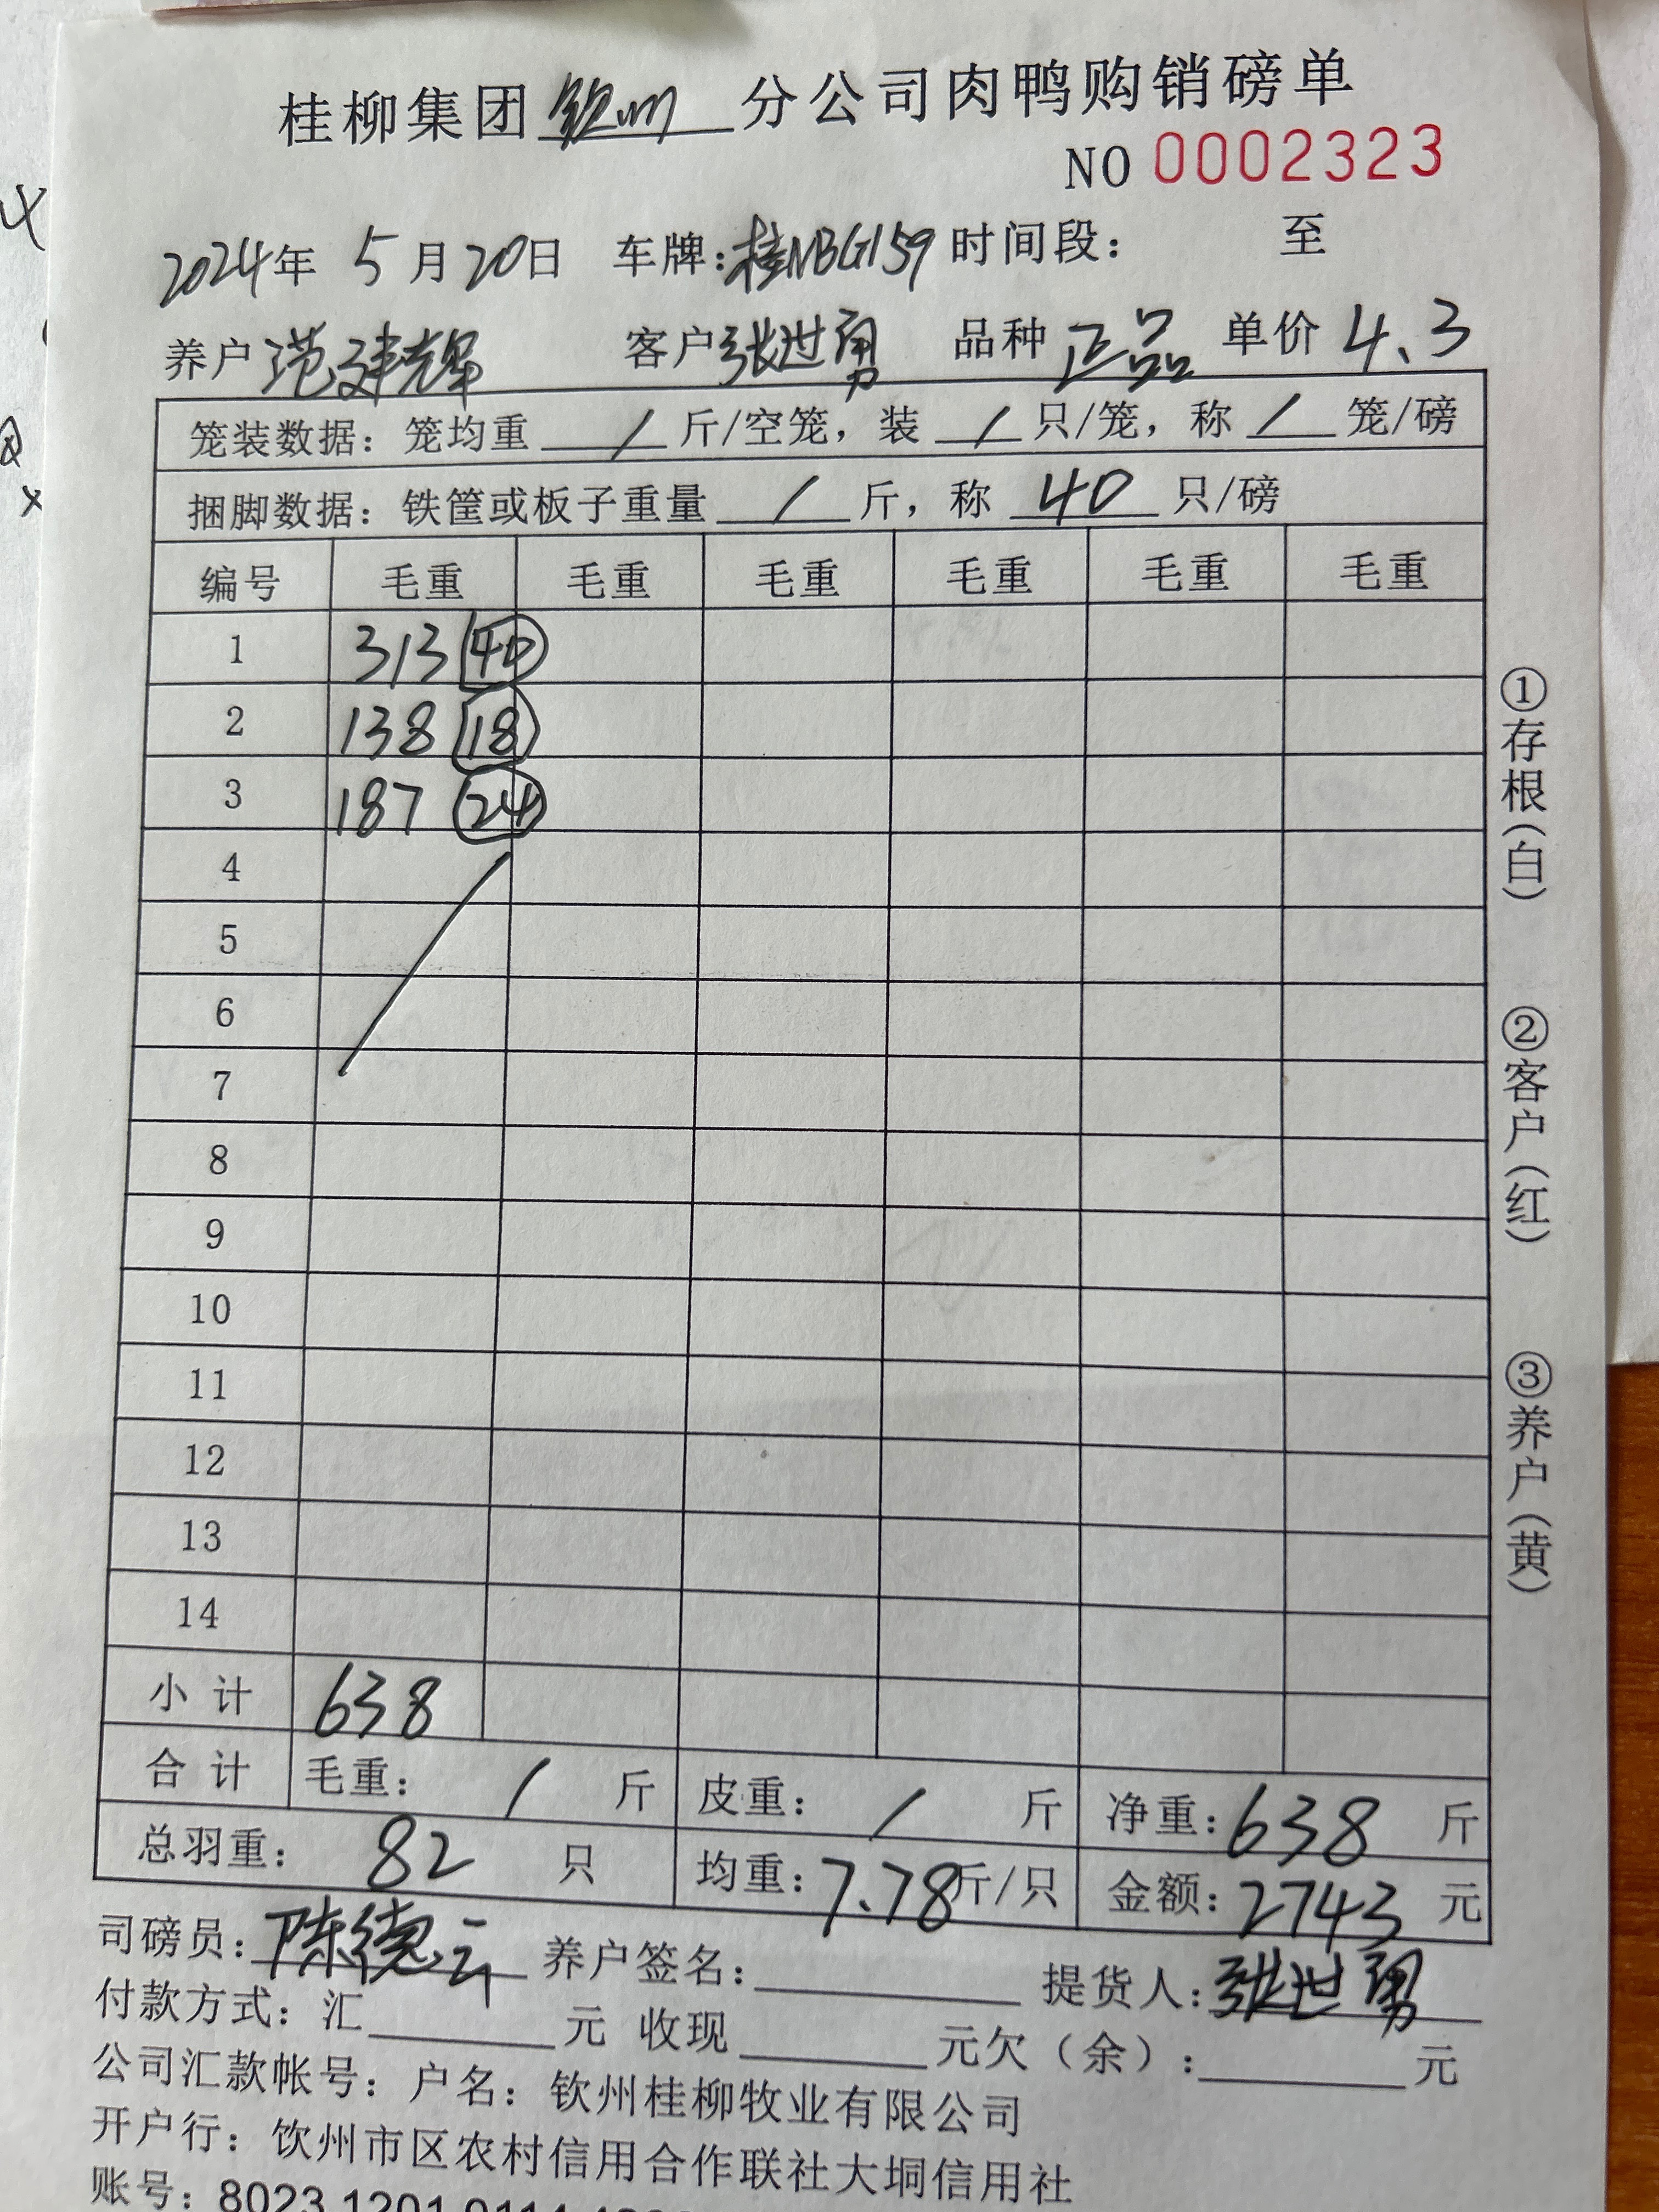 桂柳集团钦州分公司肉鸭购销磅单
NO 0002323
2024年 5月20日 车牌:桂NBG159 时间段: 至
养户范建辉 客户张世勇 品种正品 单价4.3
笼装数据:笼均重 / 斤/空笼,装 / 只/笼,称 / 笼/磅
捆脚数据:铁筐或板子重量 / 斤,称 40 只/磅
编号 毛重 毛重 毛重 毛重 毛重 毛重
1 313 40
2 138 18
3 187 24
4
5
6
7
8
9
10
11
12
13
14
小计 638
合计 毛重: / 斤 皮重: / 斤 净重:638 斤
总羽重: 82 只 均重:7.78斤/只 金额:2743 元
司磅员:陈德云 养户签名: 提货人:张世勇
付款方式:汇 元 收现 元欠(余): 元
公司汇款帐号:户名:钦州桂柳牧业有限公司
开户行:钦州市区农村信用合作联社大垌信用社
账号:8023 1201 0114
①存根(白)
②客户(红)
③养户(黄)